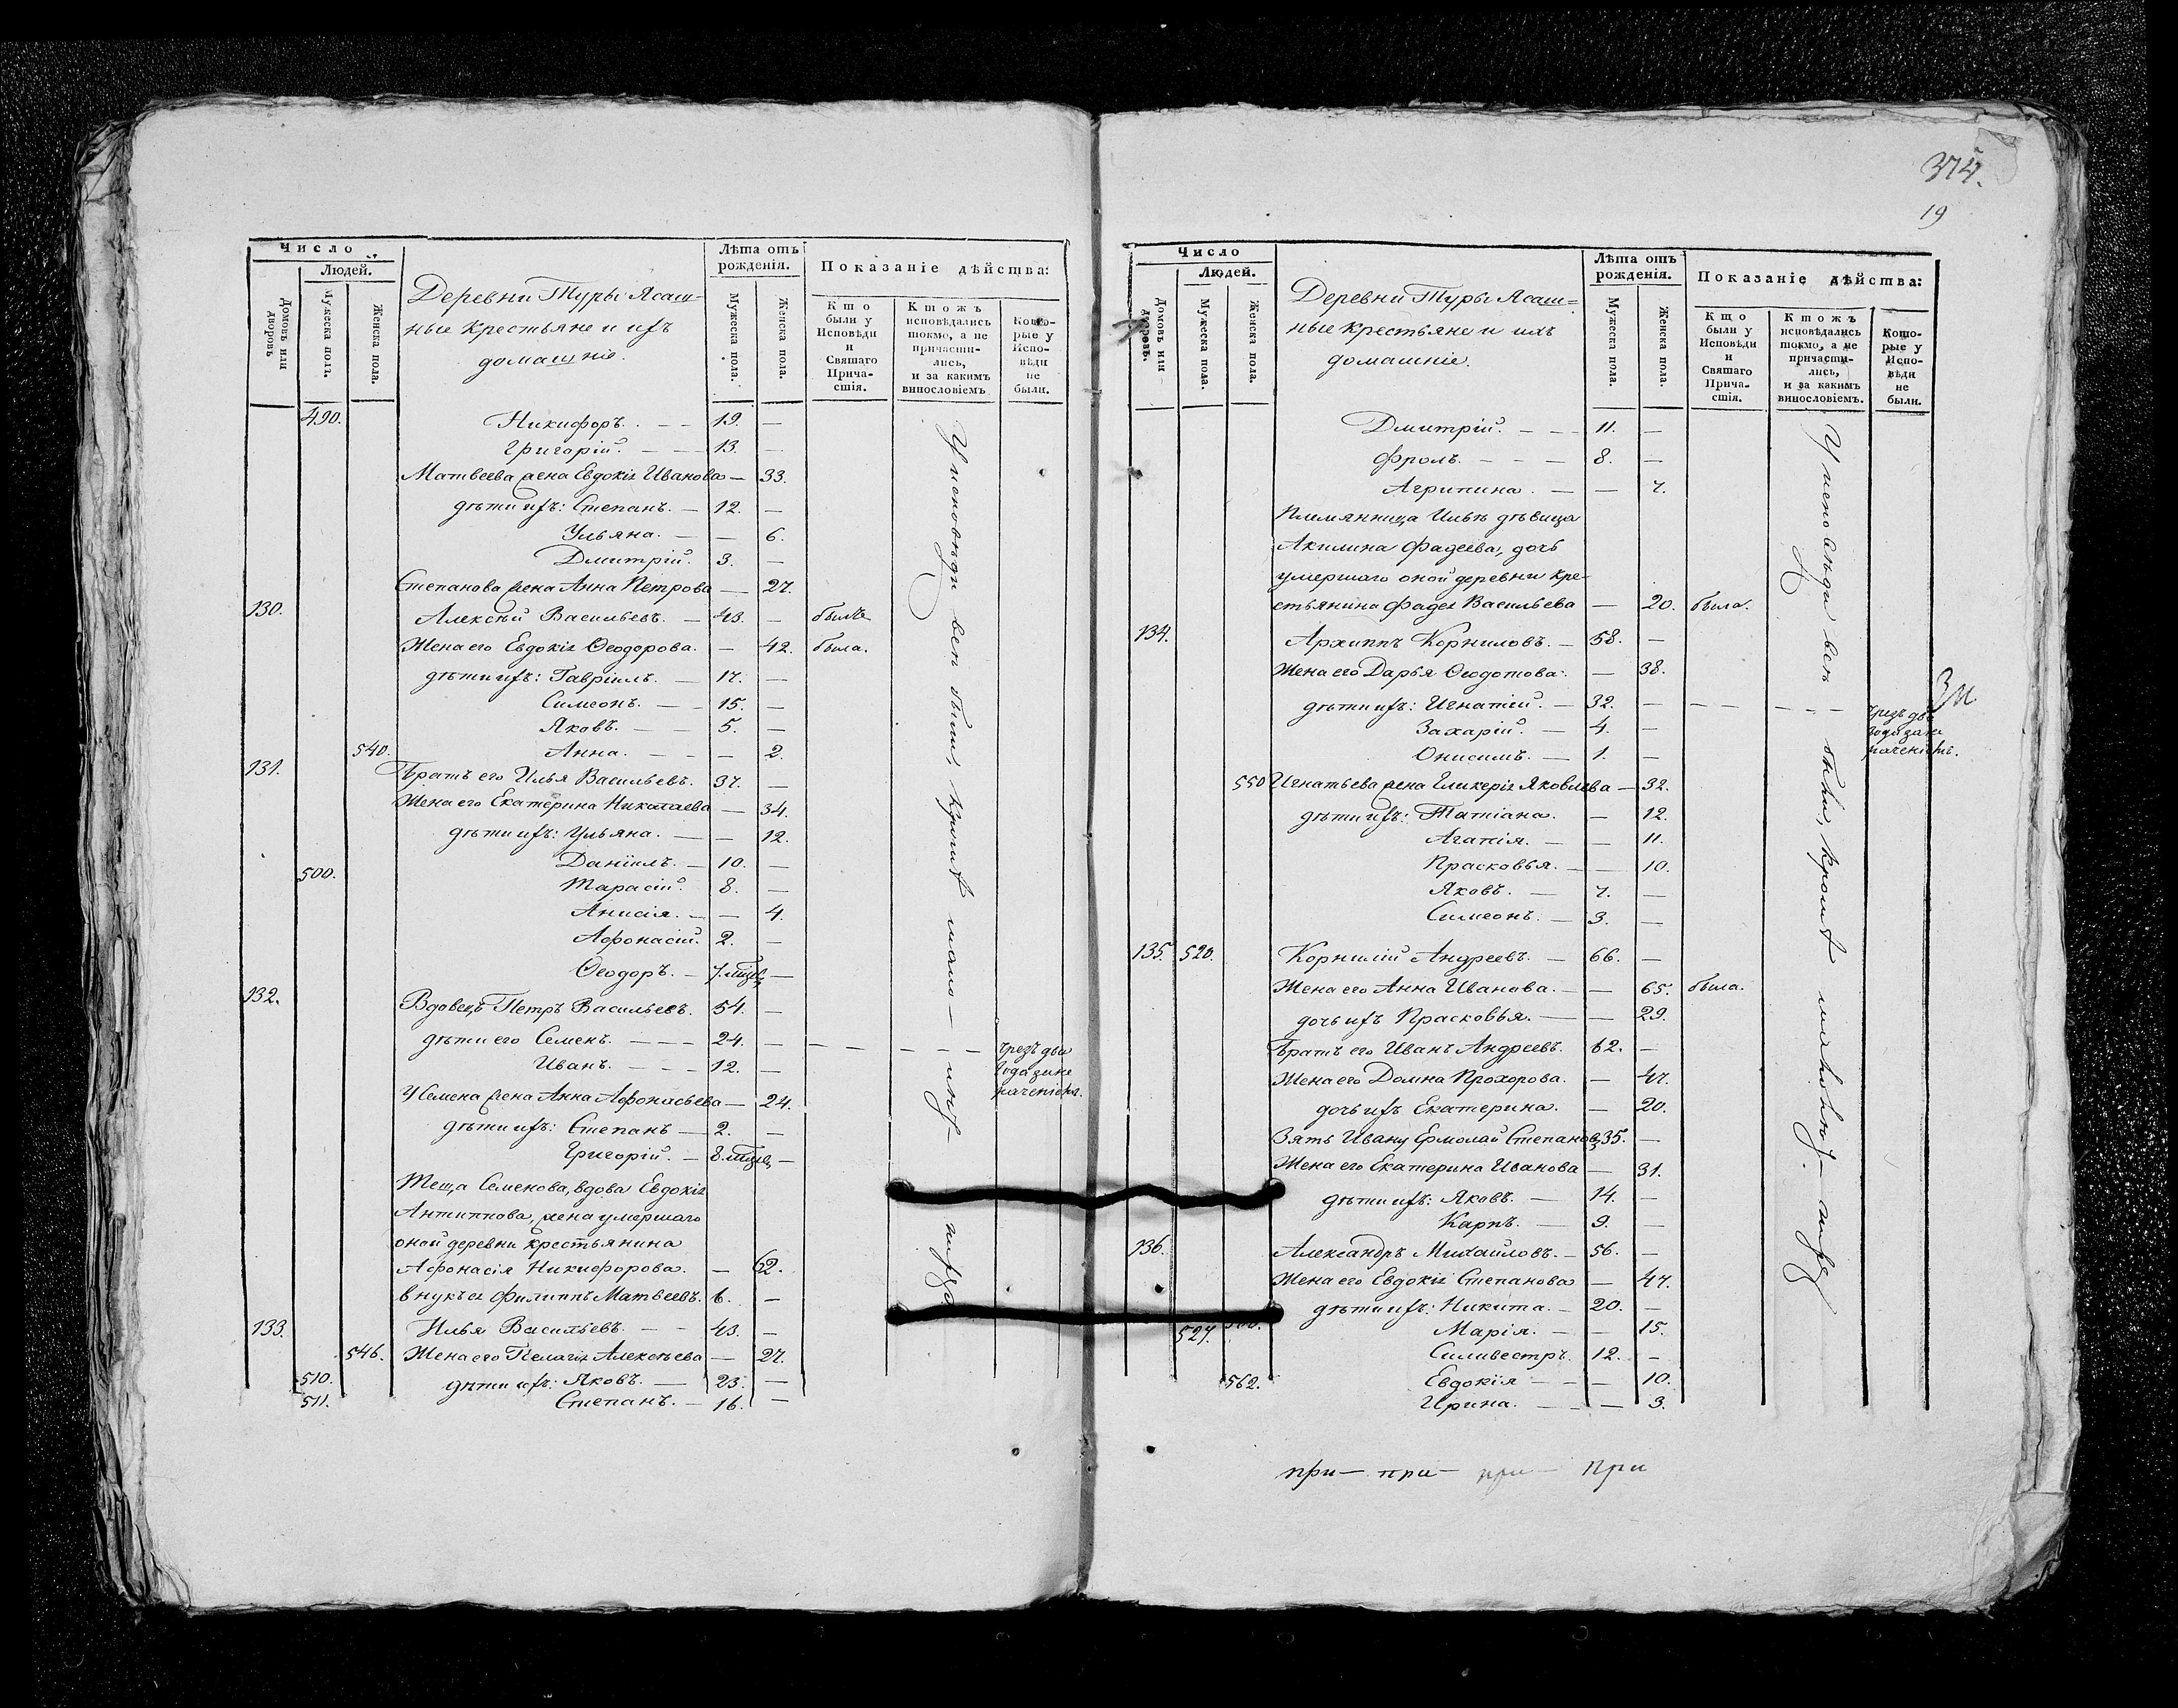 Число
Людей.
Домовъ или дворовъ
Мужеска полъ.
Женска пола.
Деревни Туры Ясаш-
ные крестьяне и ихъ
домашніе.
Лѣта отъ рожденія.
Мужеска пола.
Женска пола.
Показаніе дѣйства:
Кто были у Исповѣди и Святаго Прича-стія.
Ктожъ исповѣдались токмо, а не причасти-лись, и за какимъ винословіемъ
Кото-рые у Испо-вѣди не были.
490. Никифоръ. — — 19. —
Григорій. — — 13. —
Матвеева жена Евдокія Иванова — 33.
дѣти ихъ: Степанъ. — 12. —
Ульяна. — — 6.
Дмитрій. 3. —
Степанова жена Анна Петрова — 27.
130. Алексѣй Васильевъ. — 43. —
Жена его Евдокія Ѳеодорова. — 42. была.
дѣти ихъ: Гавріилъ. — 17. —
Симеонъ. — — 15. —
Яковъ. — — 5. —
540. Анна. — — — 2.
131. Братъ его Илья Васильевъ. 37. —
Жена его Екатерина Николаева — 34.
дѣти ихъ: Ульяна. — — 12.
Даніилъ. — 10. —
500. Тарасій. 8. —
Анисія. — — 4.
Афонасій. 2. —
Ѳеодоръ. — 7. мцъ —
132. Вдовецъ Петръ Васильевъ. 54. —
дѣти его Семенъ. — — — 24. — — — — — — чрезъ два
Иванъ. — — — 12. — года
У Семена жена Анна Афонасьева — 24.
дѣти ихъ: Степанъ — 2. —
Григорій. — 8. мцъ —
Теща Семенова, вдова Евдокія
Антипова, жена умершаго
оной деревни крестьянина
Афонасія Никифорова. — 62.
внукъ ея Филиппъ Матвеевъ. 6. —
133. Илья Васильевъ. — — 43. —
546. Жена его Пелагія Алексѣева — 27.
510. дѣти ихъ: Яковъ. — 23. —
511. Степанъ. — 16. —
374.
19
Число
Людей.
Домовъ или дворовъ.
Мужеска пола.
Женска пола.
Деревни Туры Ясаш=
ные крестьяне и ихъ
домашніе.
Лѣта отъ рожденія.
Мужеска пола.
Женска пола.
Показаніе дѣйства:
Кто были у Исповѣди и Святаго Прича-стія.
Ктожъ исповѣдались токмо, а не причасти-лись, и за какимъ винословіемъ.
Кото-рые у Испо-вѣди не были.
Дмитрій. — — — 11. —
Фролъ. — — — 8. —
Агрипина. — — 7.
Племянница Ильѣ дѣвица
Акилина Фадеева, дочь
умершаго оной деревни кре-
стьянина Фадея Васильева — 20. была.
134. Архиппъ Корниловъ. — 58. —
Жена его Дарья Ѳеодотова. — 38.
дѣти ихъ: Игнатій. — 32. — — — — — — чрезъ два
Захарій. — 4. — года
Онисимъ. — 1. —
550 Игнатьева жена Гликерія Яковлева — 32.
дѣти ихъ: Татіана. — 12.
Агапія. — — 11.
Прасковья. — — 10.
Яковъ. — 7. —
Симеонъ. — 3. —
135. 520. Корнилій Андреевъ. — 66. —
Жена его Анна Иванова. — — 65. была.
дочь ихъ Прасковья. — — 29.
Братъ его Иванъ Андреевъ. 62. —
Жена его Домна Прохорова. — 47.
дочь ихъ Екатерина. — 20.
Зять Ивану Ермолай Степановъ 35. —
Жена его Екатерина Иванова — 31.
дѣти ихъ: Яковъ. — 14. —
Карпъ. — 9. —
136. Александръ Михайловъ. — 56. —
Жена его Евдокія Степанова — 47.
дѣти ихъ: Никита. — 20. —
527. Марія. — — 15.
Силивестръ. 12. —
562. Евдокія — — — 10.
Ирина. — — — 3.
при — при — при — при